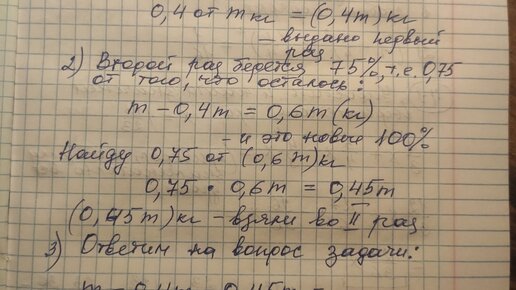 0,4 от m кг = (0,4m) кг
– выдано первый
раз
2) Второй раз берется 75%, т.е. 0,75
от того, что осталось:
m - 0,4m = 0,6m (кг)
- и это новые 100%
Найду 0,75 от (0,6m) кг
0,75 · 0,6m = 0,45m
(0,45m) кг - взяли во II раз
3) Ответим на вопрос задачи:
m - 0,4m - 0,45m =